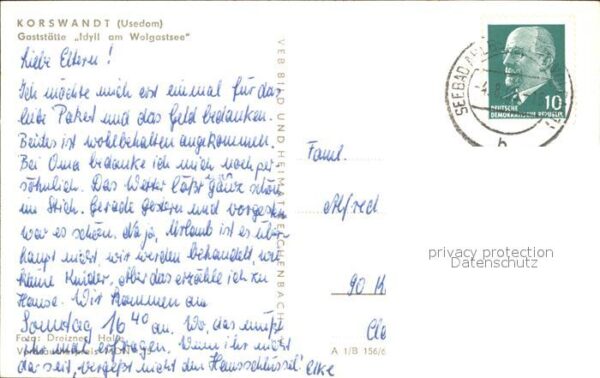 KORSWANDT (Usedom)
Gaststätte „Idyll am Wolgastsee"
Liebe Eltern!
Ich möchte mich erst einmal für das
liebe Paket und das Geld bedanken.
Beides ist wohlbehalten angekommen.
Bei Oma bedanke ich mich noch per-
söhnlich. Das Wetter läßt ganz schön
im Stich. Gerade gestern und vorgestern
war es schön. Na ja, Urlaub ist es über-
haupt nicht, wir werden behandelt, wie
kleine Kinder, aber das erzähle ich zu
Hause. Wir kommen am
Sonntag 16 40 an. Wo, das müßt
ihr mal erfragen. Wenn ihr nicht
da seit, vergeßt nicht den Hausschlüssel!
Elke
Foto: Dreizner, Halle
VEB BILD UND HEIMAT REICHENBACH
A 1/B 156/6
Faml.
Alfred
90 K
SEEBAD
DEUTSCHE
DEMOKRATISCHE REPUBLIK
10
b
privacy protection
Datenschutz